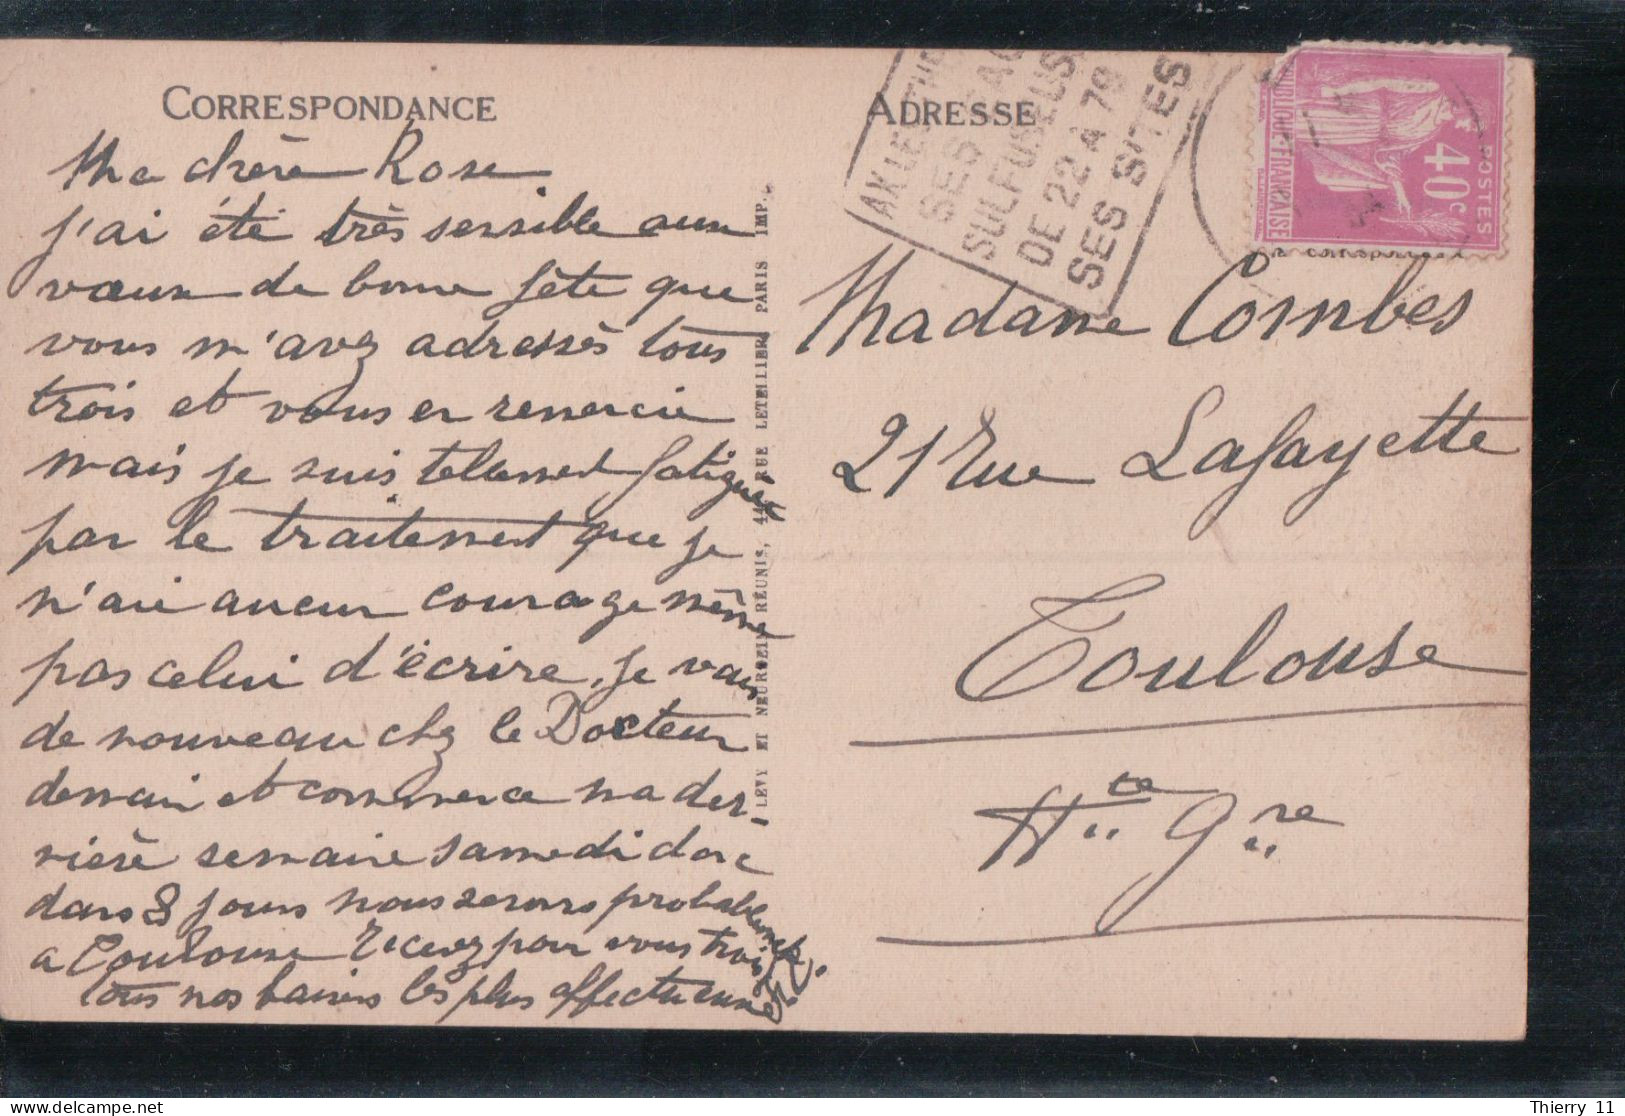 CORRESPONDANCE
Ma chère Rose
j'ai été très sensible aux
vœux de bonne fête que
vous m'avez adressés tous
trois et vous en remercie
mais je suis tellement fatiguée
par le traitement que je
n'ai aucun courage même
pas celui d'écrire, je vais
de nouveau chez le Docteur
demain et commence ma der-
nière semaine samedi donc
dans 8 jours nous serons probablement
a Toulouse Recevez pour vous trois
tous nos baisers les plus affectueux
LEVY ET NEURDEIN RÉUNIS, 44, RUE LETELLIER, PARIS IMP.
ADRESSE
AX LES THE
SES
SULFUREUSES
DE 22 A 78
SES SITES
POSTES
40c
RÉPUBLIQUE FRANÇAISE
Madame Combes
21 Rue Lafayette
Toulouse
Hte Gne
Thierry 11